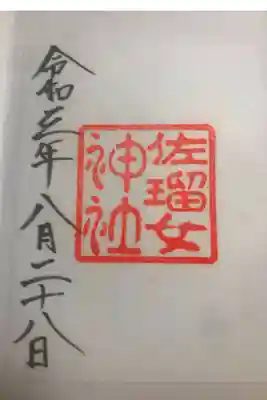 佐瑠女
神社
令和三年八月二十八日